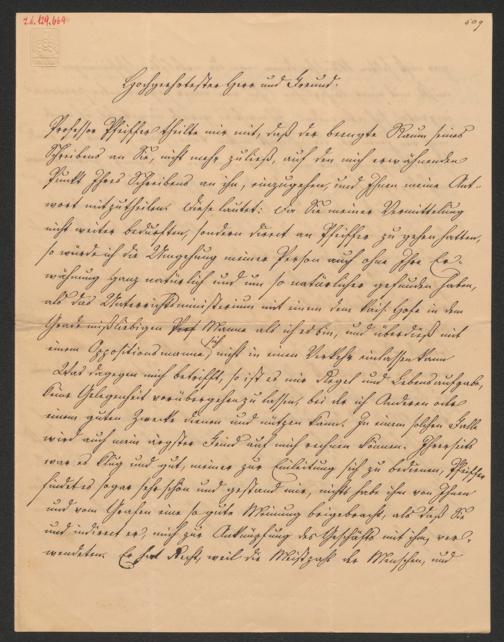 I.N. 129.664
509
Hochgeehrtester Herr und Freund.
Professor Pfeiffer theilte mir mit, daß der beengte Raum seines
Schreibens an Sie, nicht mehr zuließ, auf den mich erwähnenden
Punkt Ihres Schreibens an ihn, einzugehen, und Ihnen meine Ant-
wort mitzutheilen. Diese lautet: Da Sie meiner Vermittelung
nicht weiter bedürften, sondern direct an Pfeiffer zu gehen hatten,
so würde ich die Umgehung meiner Person auch ohne Ihre Er-
wähnung ganz natürlich und um so natürlicher gefunden haben,
als das Unterrichtsministerium mit einem dem kais. Hofe in dem
Grade mißliebigen Manne als ich es bin, und überdieß mit
einem Oppositionsmanne, sich nicht in einen Verkehr einlassen kann
Was dagegen mich betrifft, so ist es mir Regel und Lebensaufgabe,
keine Gelegenheit vorübergehen zu lassen, bei der ich Anderen oder
einem guten Zwecke dienen und nützen kann. In einem solchen Falle
wird auch mein ärgster Feind auf mich rechnen können. Ihrerseits
war es klug und gut, meiner zur Einleitung sich zu bedienen, Pfeiffer
findet es sogar sehr schön und gestand mir, nichts habe ihm von Ihnen
und vom Grafen eine so gute Meinung beigebracht, als daß Sie
und indirect er, mich zur Anknüpfung des Geschäfts mit ihm, ver-
wendeten. Er hat Recht, weil die Mehrzahl der Menschen, und